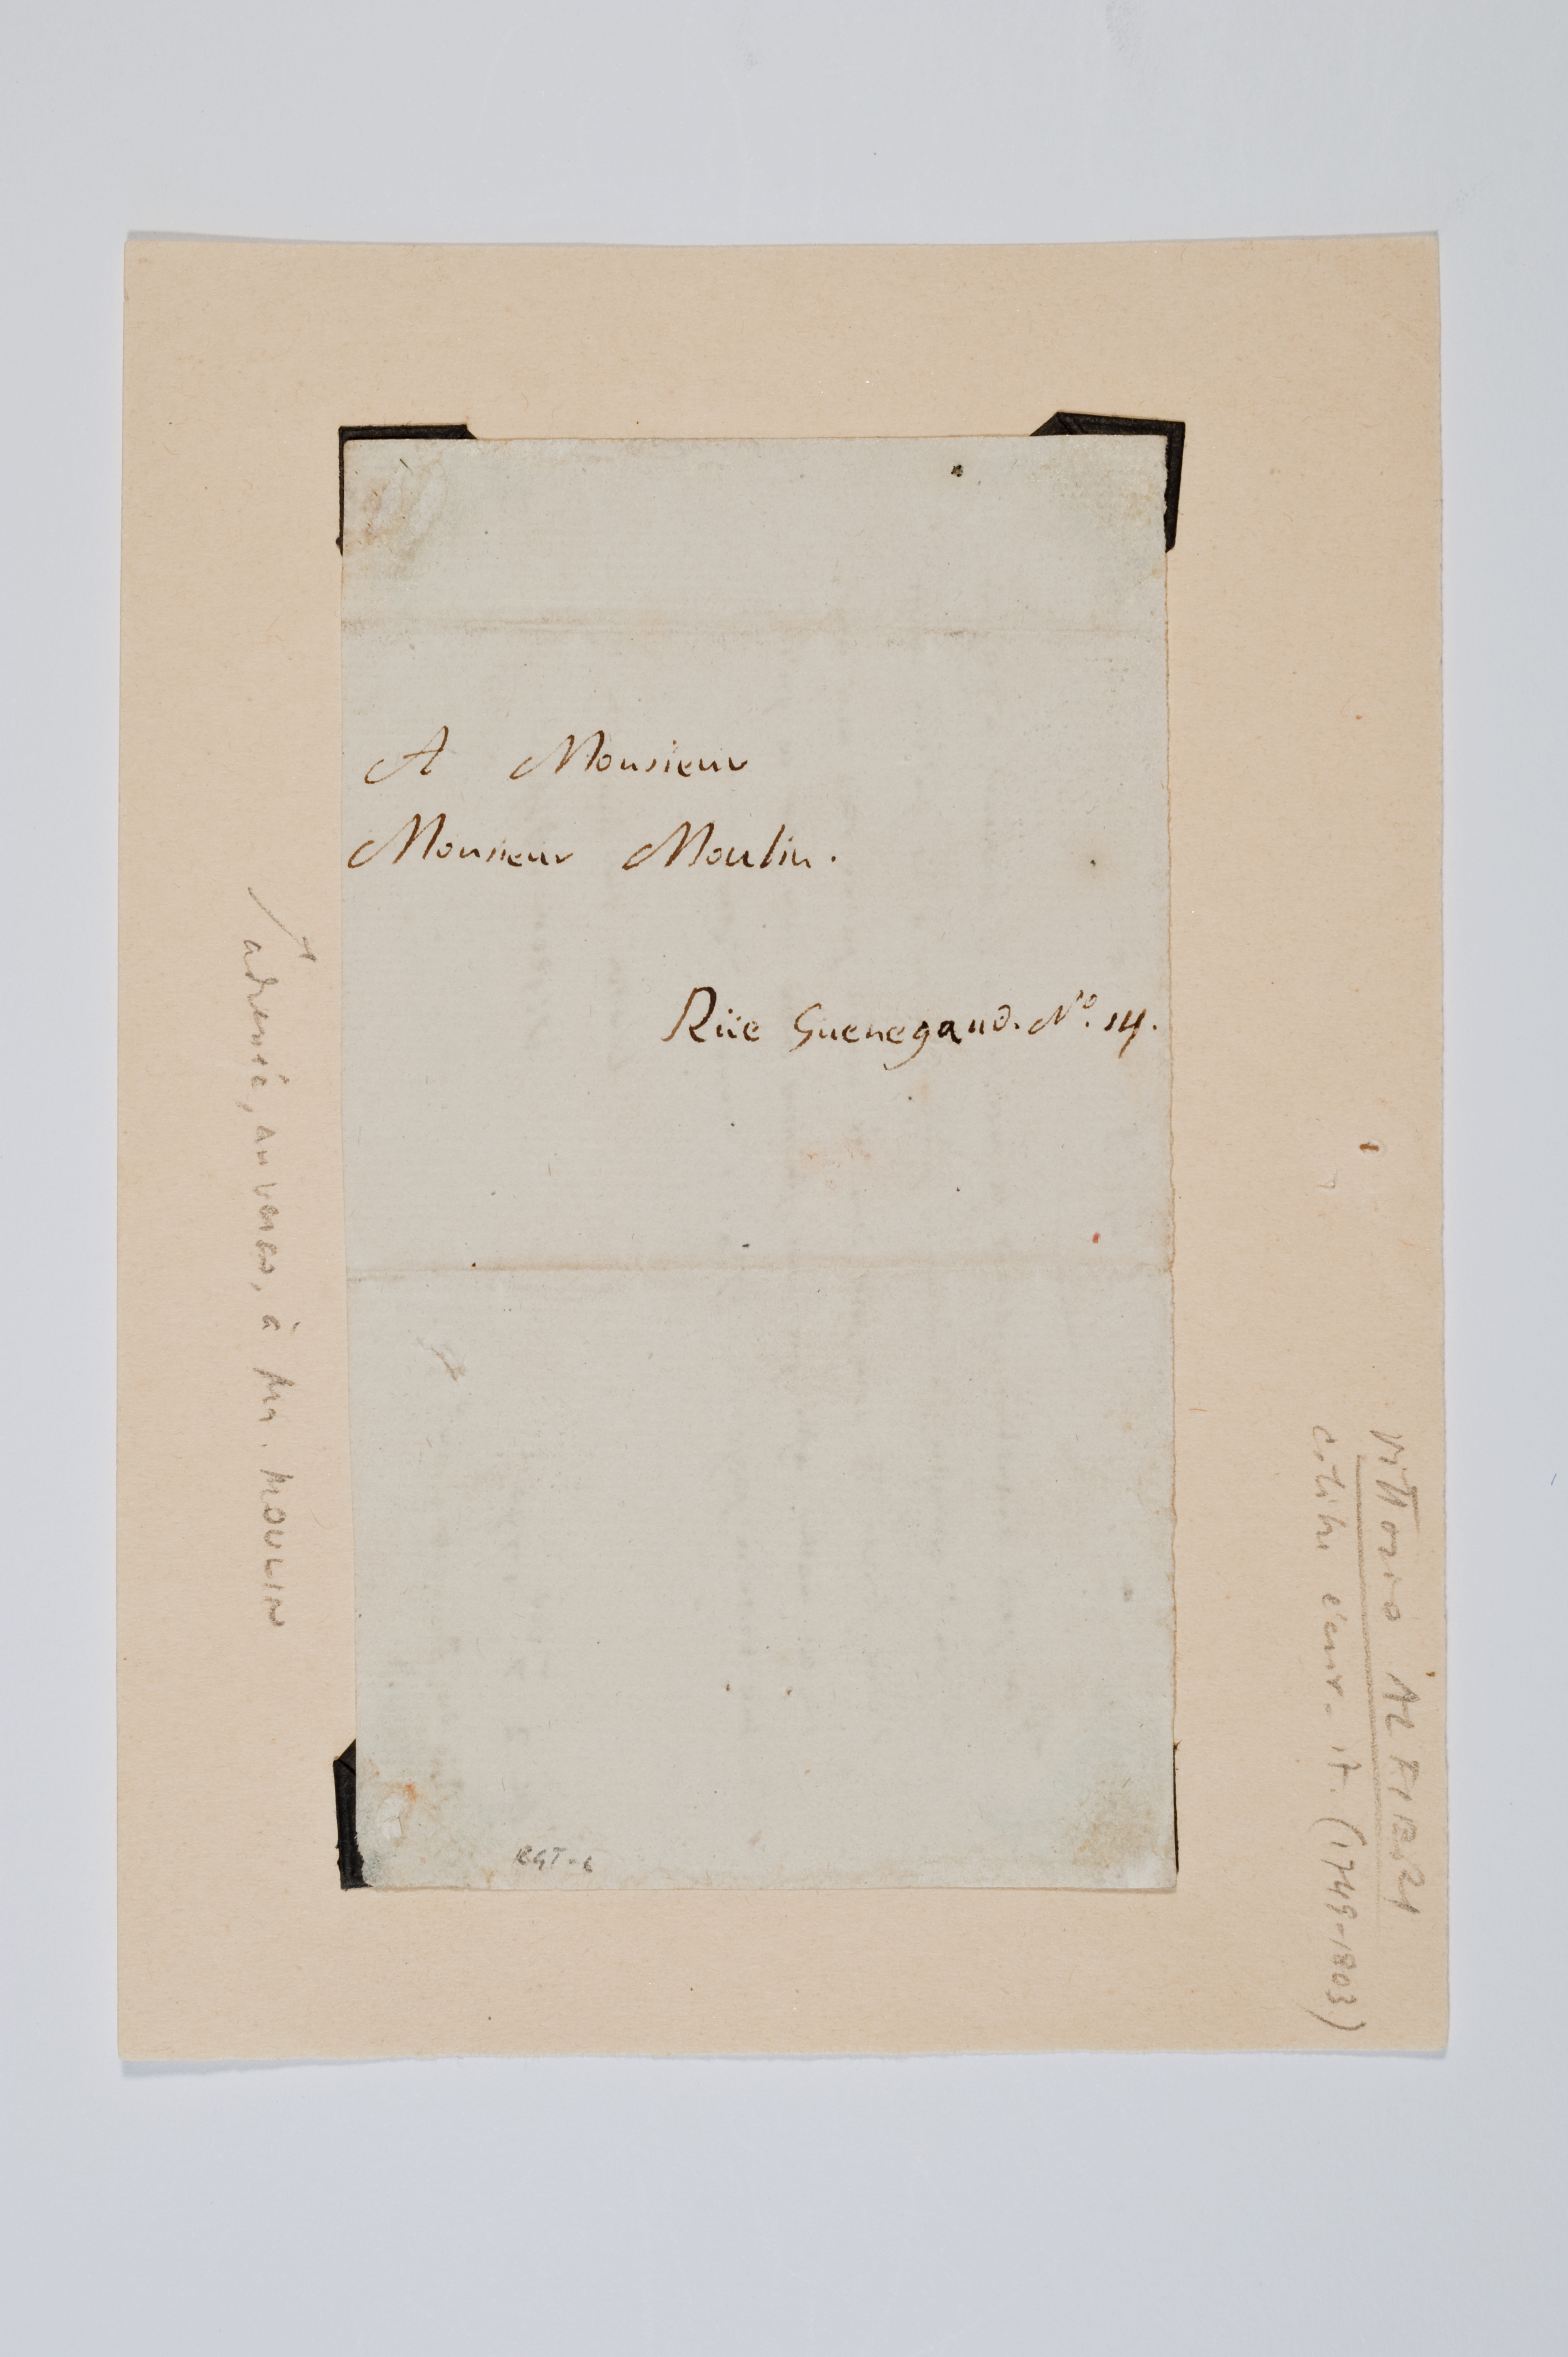 A Monsieur
Monsieur Moulin.
Rüe Guenegaud. Nº. 14.
adressé, au verso, à Mr. MOULIN
Vittorio ALFIERI
célèbre écriv. it. (1749-1803)